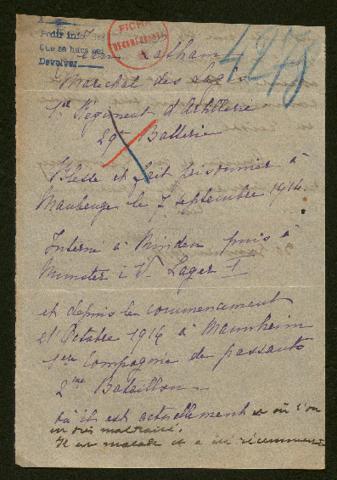 Pedir inf
Que se haga
Devolver
FICHA
428
Latham
Marechal des Logis
1er Régiment d'Artillerie
29e Batterie
Blessé et fait prisonnier à
Maubeuge le 7 septembre 1914.
Interné à Minden puis à
Munster i. W. Lager I
et depuis le commencement
d'Octobre 1916 à Mannheim
1ere Compagnie de passants
2me Bataillon
où il est actuellement et où l'on
maltraité.
Il est malade et a été récemment